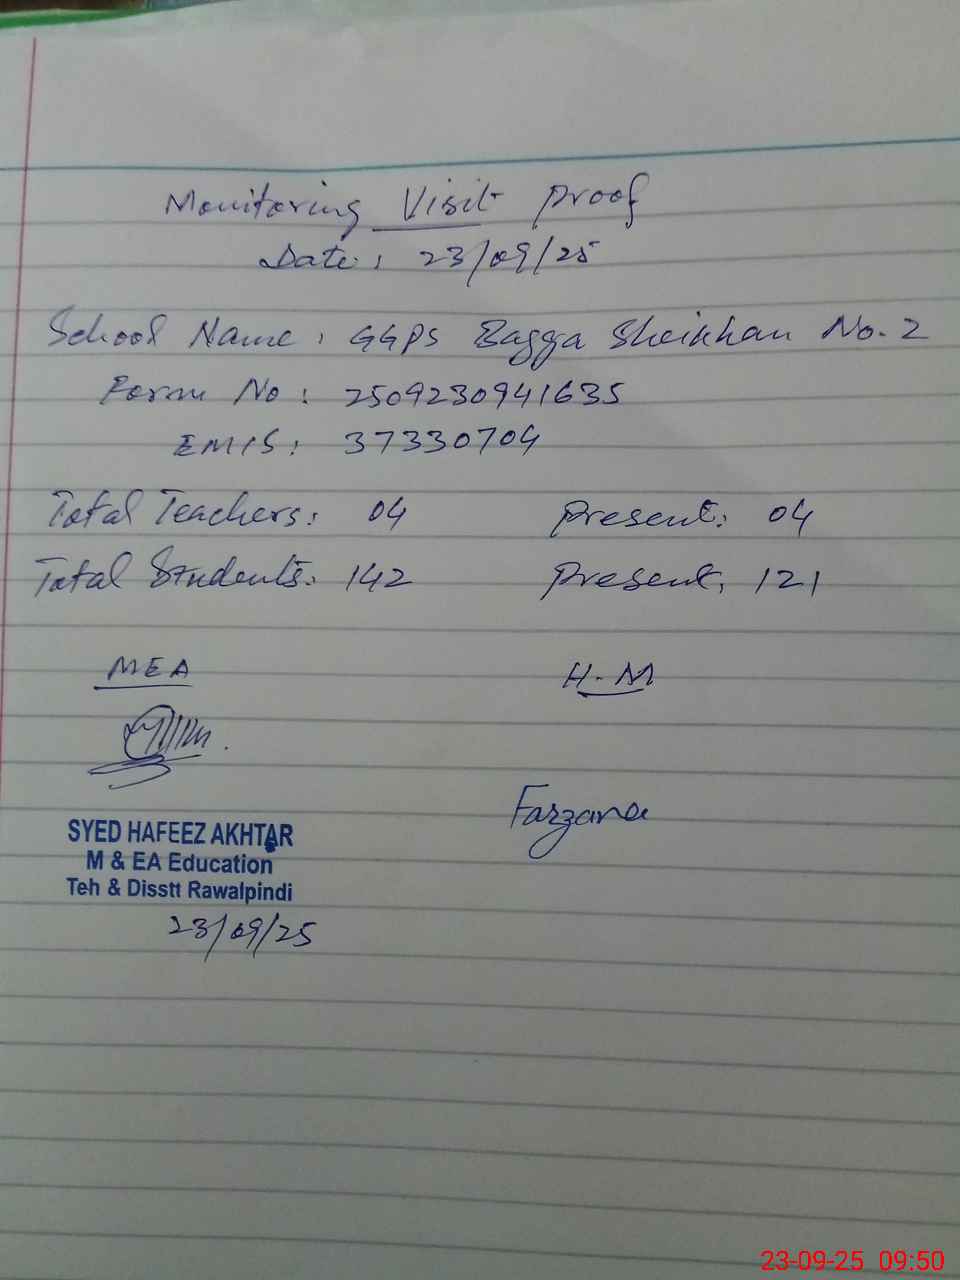 Monitoring Visit Proof
Date: 23/09/25
School Name: GGPS Bagga Sheikhan No. 2
Form No: 2509230941635
EMIS: 37330704
Total Teachers: 04 Present: 04
Total Students: 142 Present: 121
MEA H.M
Farzana
SYED HAFEEZ AKHTAR
M & EA Education
Teh & Disstt Rawalpindi
23/09/25
23-09-25 09:50